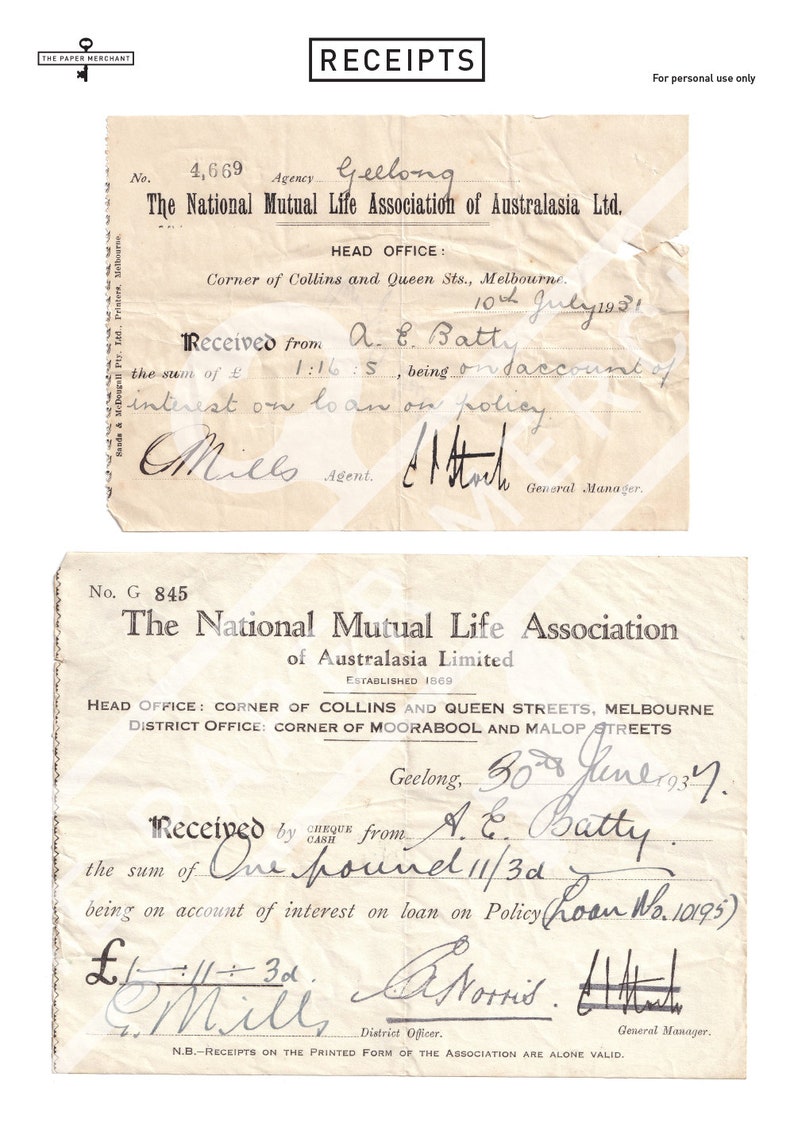 THE PAPER MERCHANT
RECEIPTS
For personal use only
No. 4,669 Agency Geelong
The National Mutual Life Association of Australasia Ltd.
HEAD OFFICE:
Corner of Collins and Queen Sts., Melbourne.
10th July 1931
Received from A. E. Batty
the sum of £ 1:16:5, being on account of
interest on loan on policy
C Mills Agent. General Manager.
Sands & McDougall Pty. Ltd., Printers, Melbourne.
No. G 845
The National Mutual Life Association
of Australasia Limited
ESTABLISHED 1869
HEAD OFFICE: CORNER OF COLLINS AND QUEEN STREETS, MELBOURNE
DISTRICT OFFICE: CORNER OF MOORABOOL AND MALOP STREETS
Geelong, 30th June 1937.
Received by CHEQUE CASH from A. E. Batty.
the sum of One pound 11/3d
being on account of interest on loan on Policy (Loan No. 10195)
£1—:11—:3d.
Norris.
G. Mills District Officer. General Manager.
N.B.—RECEIPTS ON THE PRINTED FORM OF THE ASSOCIATION ARE ALONE VALID.